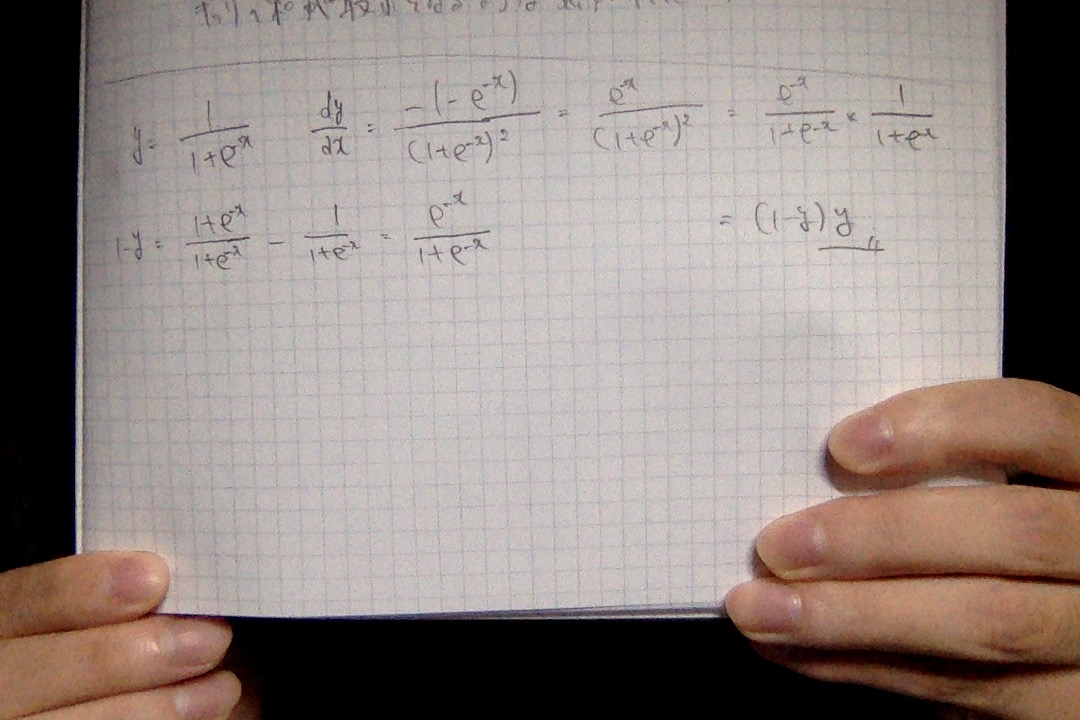 y = 1/(1+e^-x) dy/dx = -(-e^-x)/(1+e^-x)^2 = e^-x/(1+e^-x)^2 = e^-x/(1+e^-x) × 1/(1+e^-x)
1-y = (1+e^-x)/(1+e^-x) - 1/(1+e^-x) = e^-x/(1+e^-x) = (1-y)y